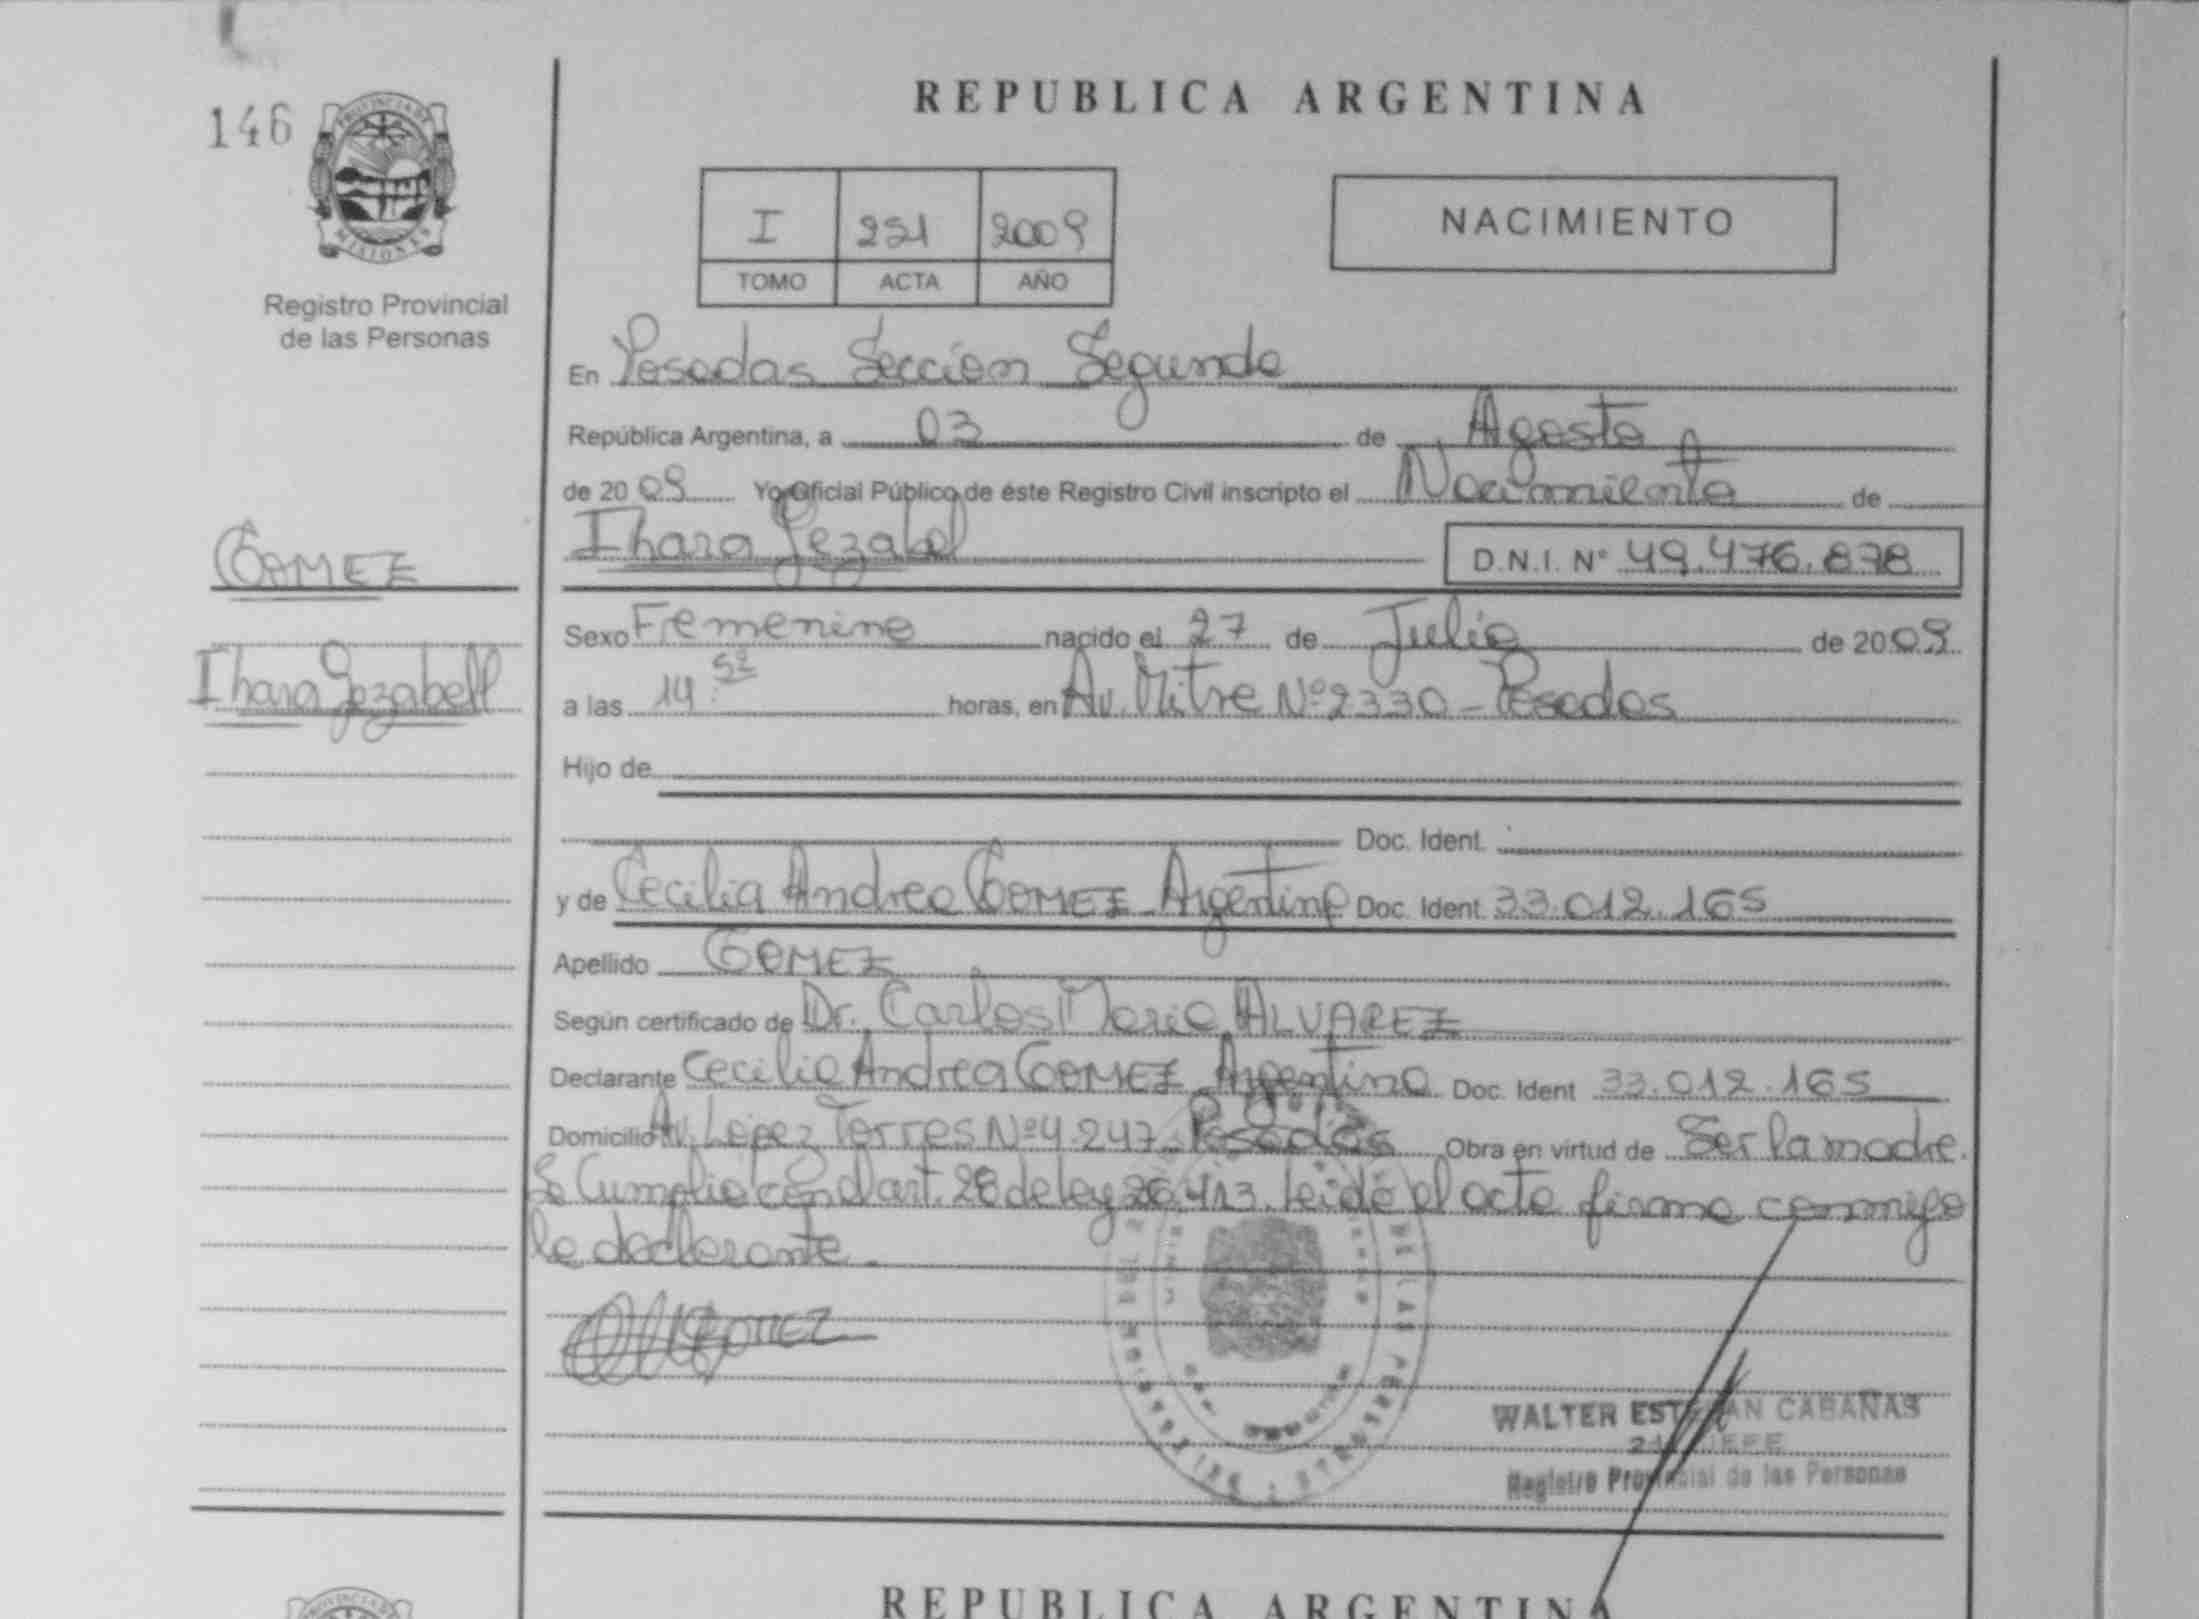 146
PROVINCIA DE
MISIONES
Registro Provincial
de las Personas
GOMEZ
Ihara Jezabell
REPUBLICA ARGENTINA
I 251 2009
TOMO ACTA AÑO
NACIMIENTO
En Posadas Sección Segunda
República Argentina, a 03 de Agosto
de 2009 Yo Oficial Público de éste Registro Civil inscripto el Nacimiento de
Ihara Jezabel D.N.I. Nº 49.476.878
Sexo Femenino nacido el 27 de Julio de 2009
a las 14:52 horas, en Av. Mitre Nº 2330 - Posadas
Hijo de
Doc. Ident.
y de Cecilia Andrea GOMEZ Argentina Doc. Ident. 33.012.165
Apellido GOMEZ
Según certificado de Dr. Carlos Mario ALVAREZ
Declarante Cecilia Andrea GOMEZ Argentina Doc. Ident 33.012.165
Domicilio Av. López Torres Nº 4.247 - Posadas Obra en virtud de Ser la madre.
Se Cumplio con el art. 28 de ley 26.413. leida el acta firma conmigo
la declarante.
GOMEZ
WALTER ESTEBAN CABAÑAS
JEFE
Registro Provincial de las Personas
REPUBLICA ARGENTINA